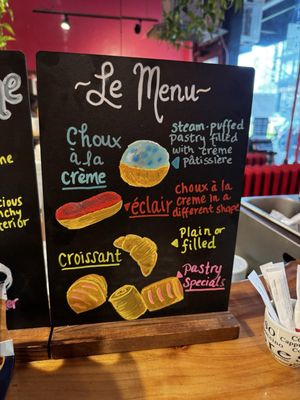 ~Le Menu~
Choux
à la
crème
steam-puffed
pastry filled
with crème
pâtissière
éclair
choux à la
creme in a
different shape
Croissant
Plain or
filled
Pastry
Specials